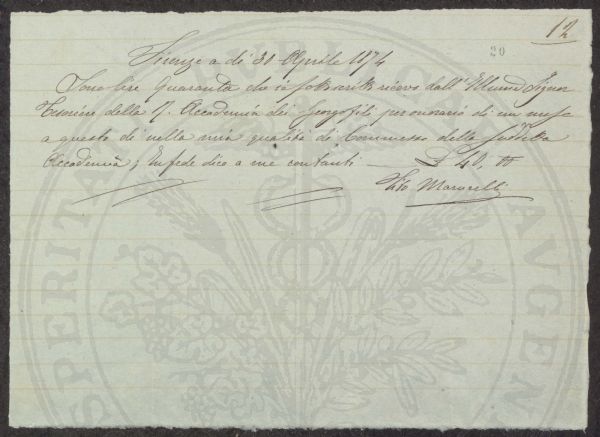 12
20
Firenze a dì 30 Aprile 1874
Sono lire Quaranta che io sottoscritto ricevo dall' Illmo Signor
Economo della R. Accademia dei Georgofili per onorario di un mese
a questo dì nella mia qualità di Commesso della suddetta
Accademia; In fede dico a me contanti — £ 40, 00
Marinelli
PROSPERITATI AUGEN